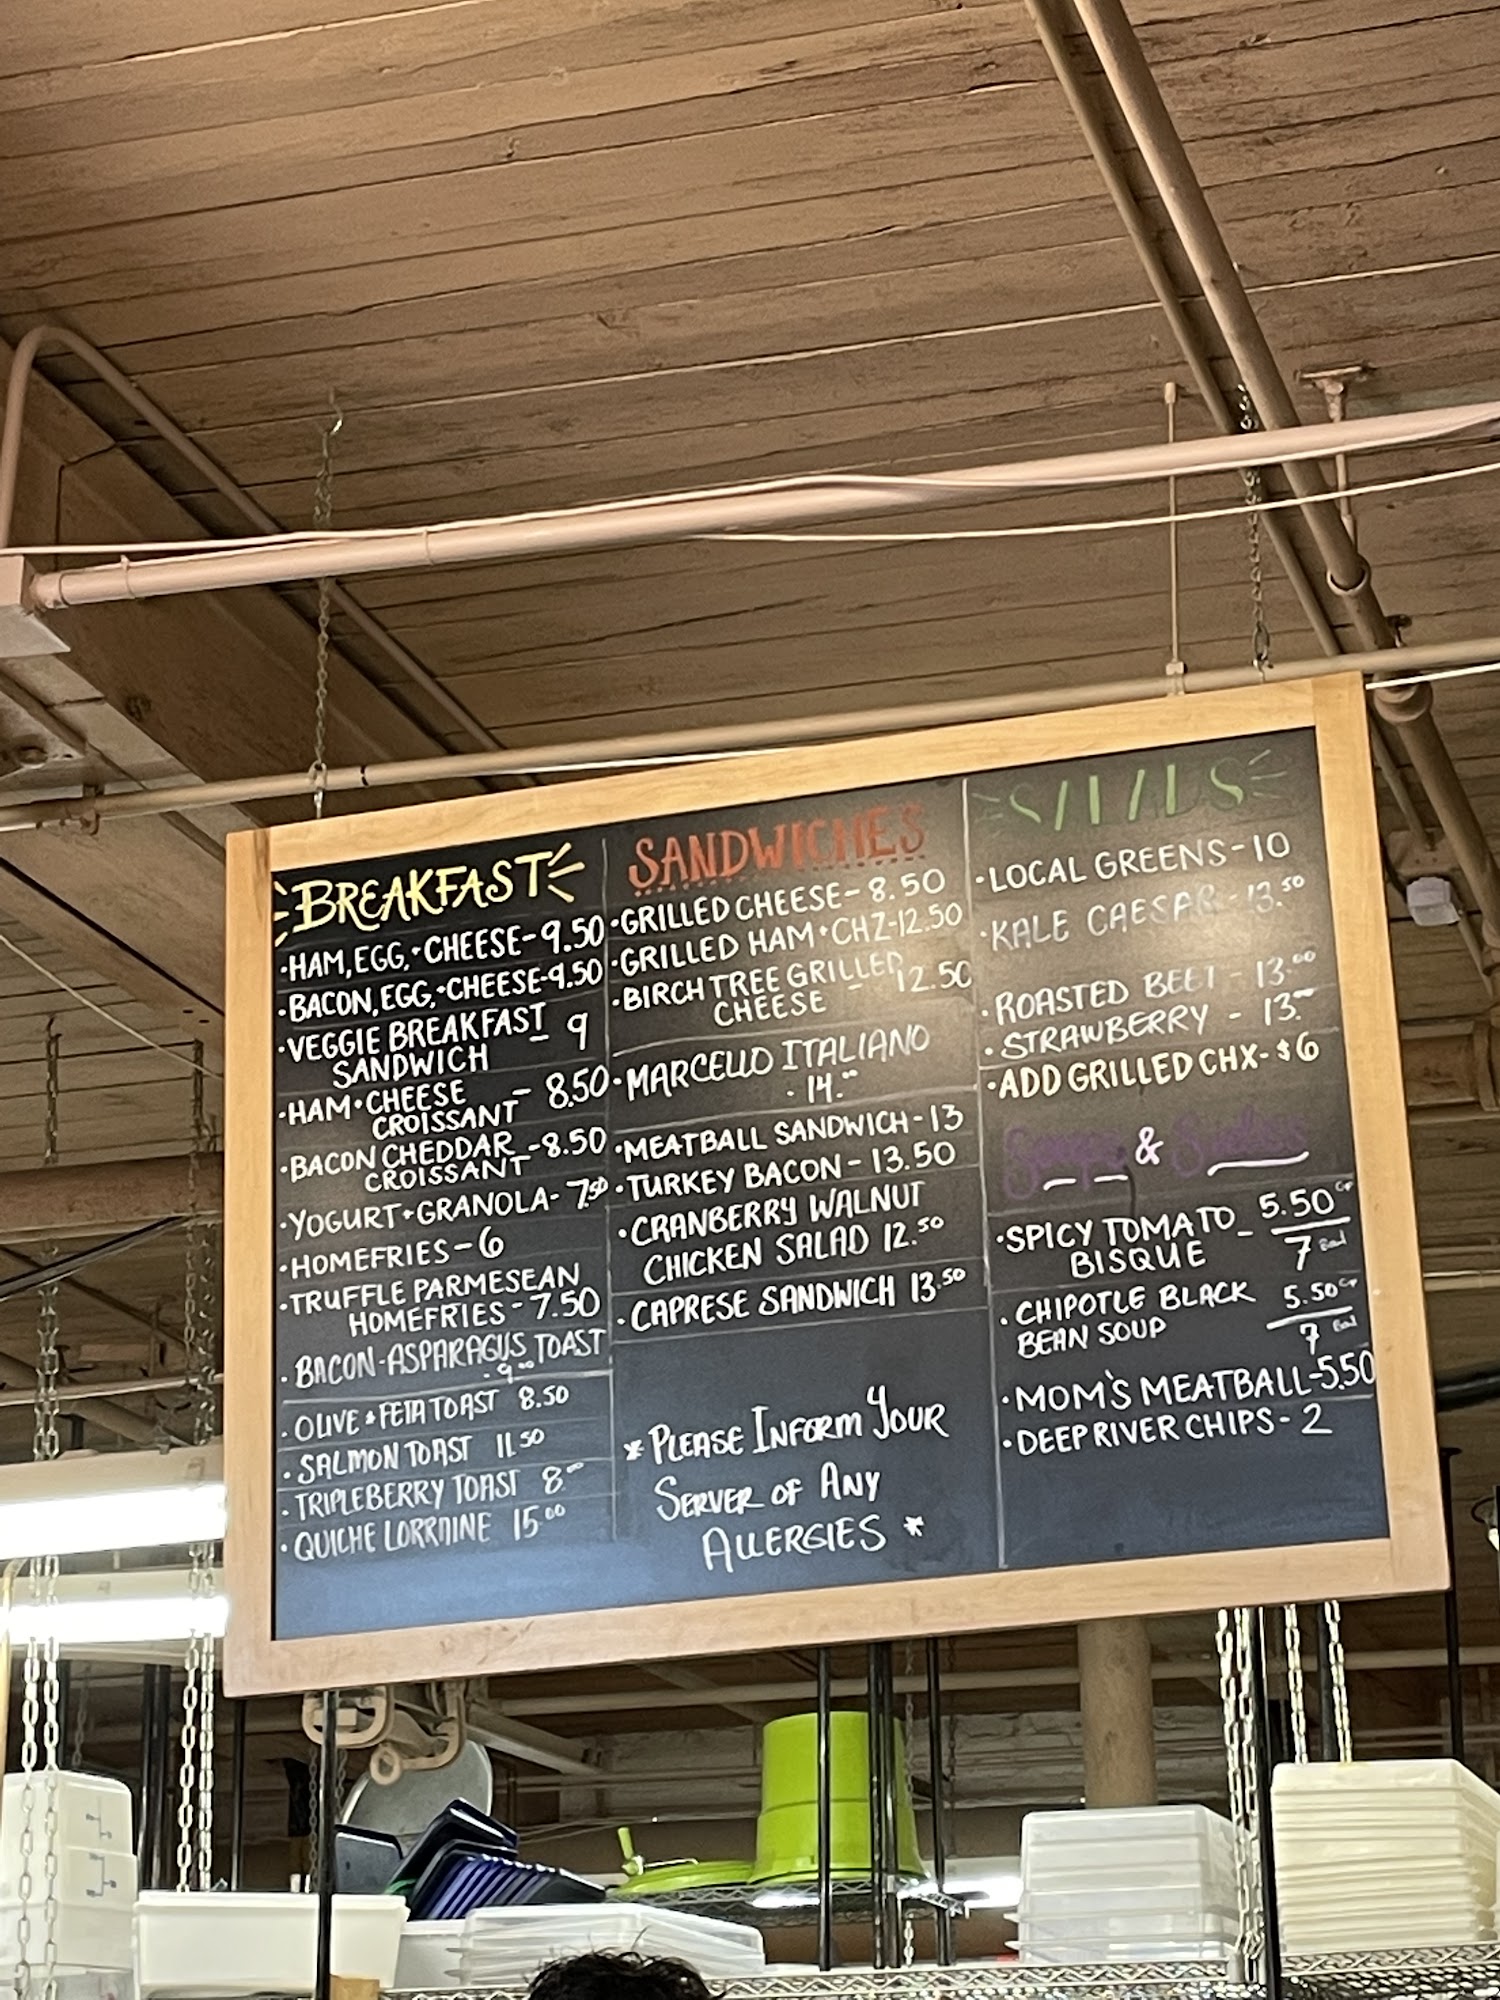 BREAKFAST
·HAM, EGG, + CHEESE - 9.50
·BACON, EGG, + CHEESE - 9.50
·VEGGIE BREAKFAST
SANDWICH - 9
·HAM + CHEESE
CROISSANT - 8.50
·BACON CHEDDAR
CROISSANT - 8.50
·YOGURT + GRANOLA - 7.50
·HOMEFRIES - 6
·TRUFFLE PARMESEAN
HOMEFRIES - 7.50
·BACON-ASPARAGUS TOAST
·9.00
·OLIVE & FETA TOAST 8.50
·SALMON TOAST 11.50
·TRIPLEBERRY TOAST 8.00
·QUICHE LORRAINE 15.00
SANDWICHES
·GRILLED CHEESE - 8.50
·GRILLED HAM + CHZ - 12.50
·BIRCH TREE GRILLED
CHEESE - 12.50
·MARCELLO ITALIANO
·14.00
·MEATBALL SANDWICH - 13
·TURKEY BACON - 13.50
·CRANBERRY WALNUT
CHICKEN SALAD 12.50
·CAPRESE SANDWICH 13.50
* PLEASE INFORM YOUR
SERVER OF ANY
ALLERGIES *
SALADS
·LOCAL GREENS - 10
·KALE CAESAR - 13.50
·ROASTED BEET - 13.00
·STRAWBERRY - 13.00
·ADD GRILLED CHX - $6
Soups & Sides
·SPICY TOMATO
BISQUE - 5.50 CP
7 Bowl
·CHIPOTLE BLACK
BEAN SOUP 5.50 CP
7 Bowl
·MOM'S MEATBALL - 5.50
·DEEP RIVER CHIPS - 2